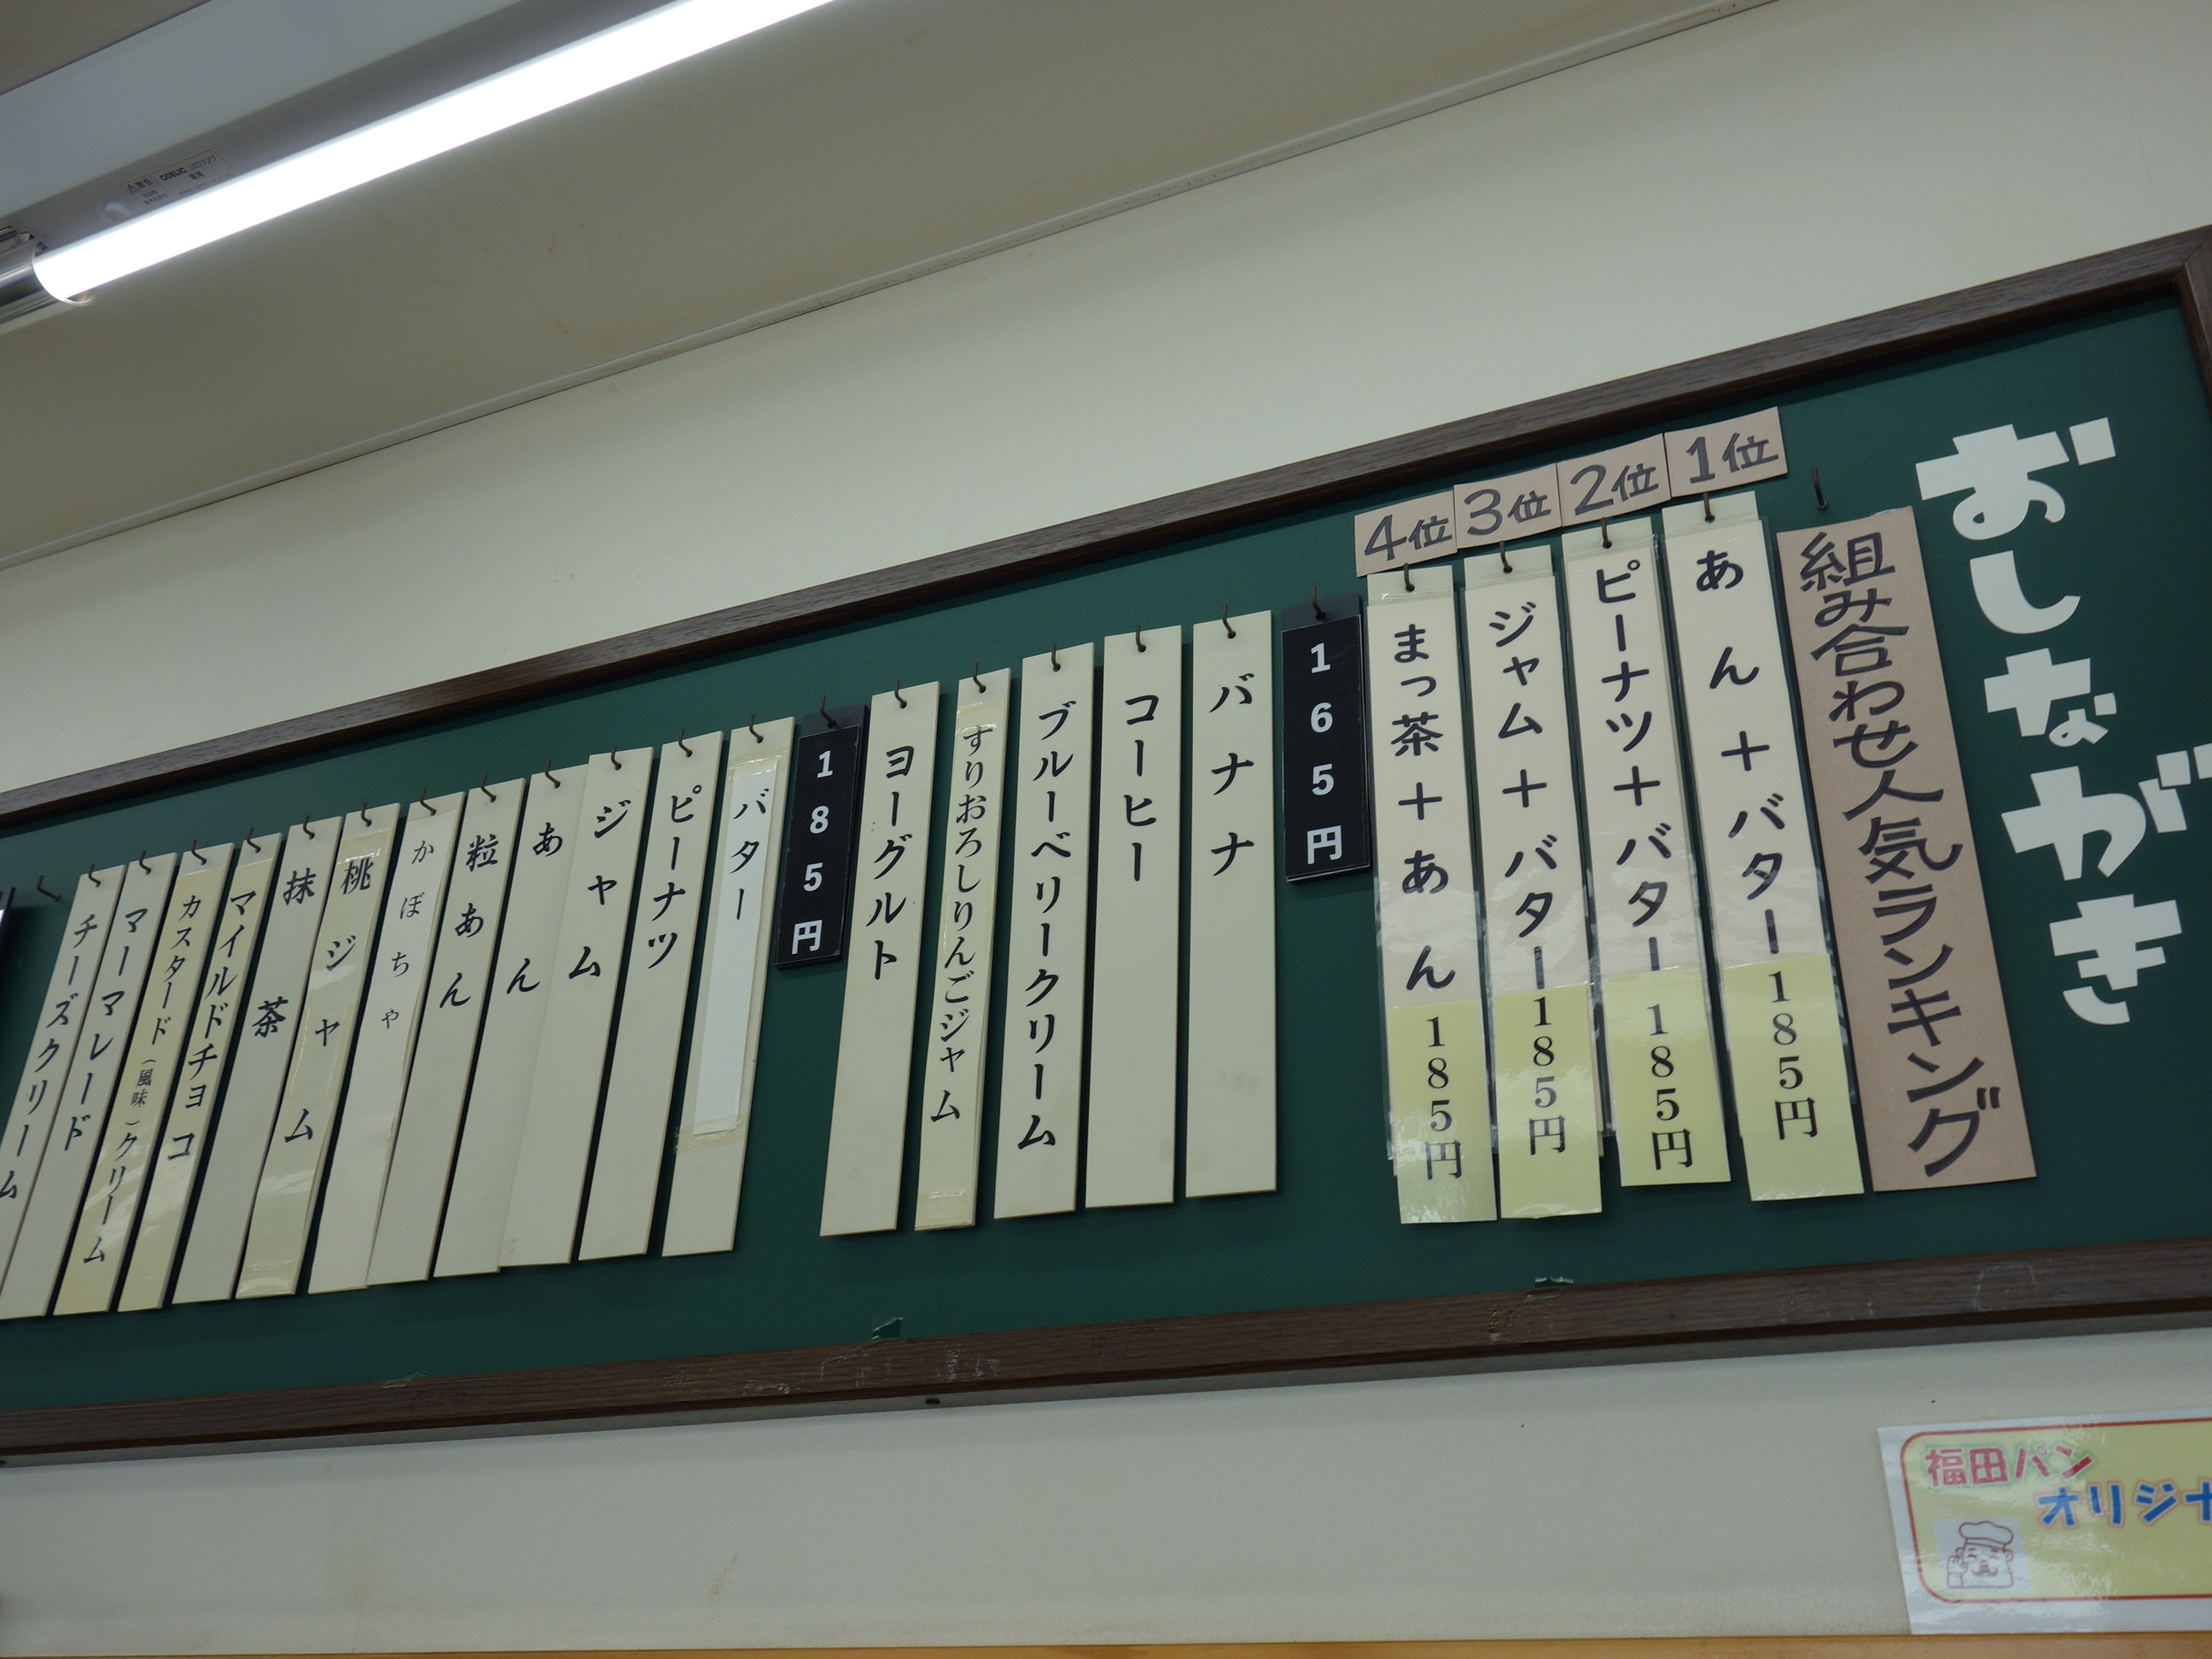 おしながき
組み合わせ人気ランキング
1位
あん+バター185円
2位
ピーナツ+バター185円
3位
ジャム+バター185円
4位
まっ茶+あん185円
165円
バナナ
コーヒー
ブルーベリークリーム
すりおろしりんごジャム
ヨーグルト
185円
バター
ピーナツ
ジャム
あん
粒あん
かぼちゃ
桃ジャム
抹茶
マイルドチョコ
カスタード(風味)クリーム
マーマレード
チーズクリーム
ム
福田パン
オリジナ
ODELIC